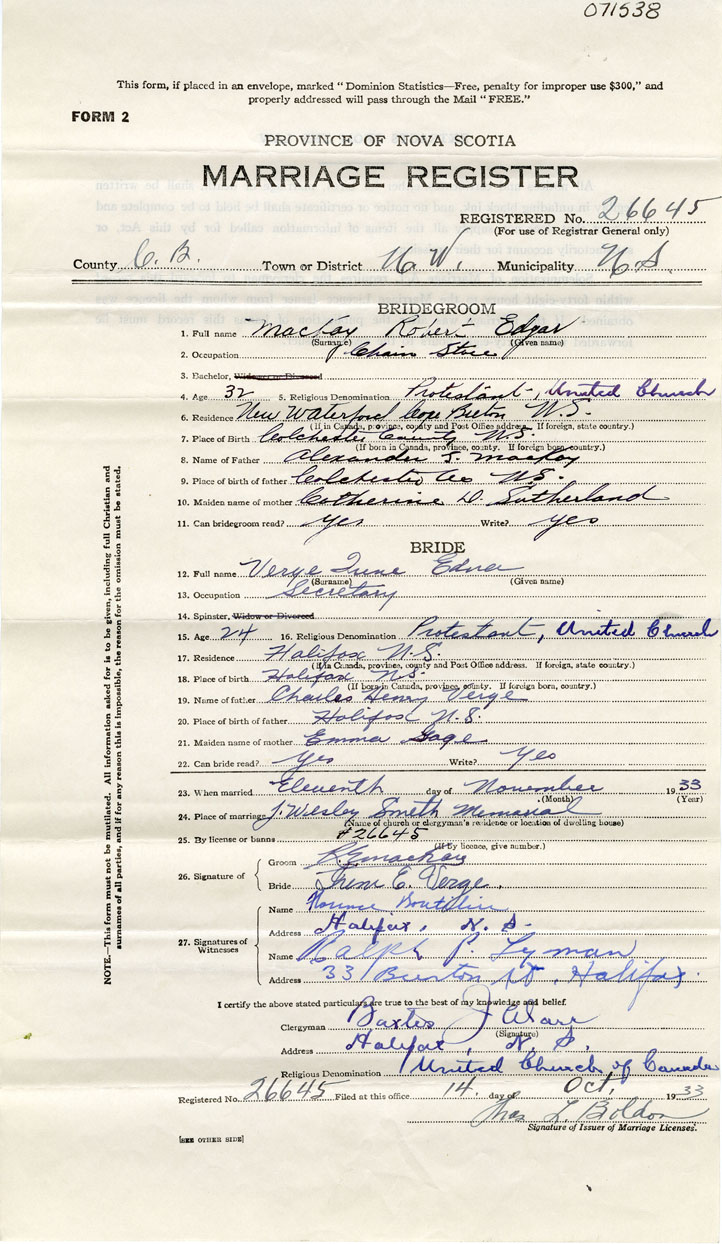 071538
This form, if placed in an envelope, marked "Dominion Statistics—Free, penalty for improper use $300," and
properly addressed will pass through the Mail "FREE."
FORM 2
PROVINCE OF NOVA SCOTIA
MARRIAGE REGISTER
REGISTERED No. 26645
(For use of Registrar General only)
County C. B. Town or District N. W. Municipality N. S.
BRIDEGROOM
1. Full name MacKay Robert Edgar
(Surname) (Given name)
2. Occupation Chain Store
3. Bachelor, Widower or Divorced
4. Age 32 5. Religious Denomination Protestant, United Church
6. Residence New Waterford Cape Breton N.S.
(If in Canada, province, county and Post Office address. If foreign, state country.)
7. Place of Birth Colchester County N.S.
(If born in Canada, province, county. If foreign born, country.)
8. Name of Father Alexander MacKay
9. Place of birth of father Colchester Co N.S.
10. Maiden name of mother Catherine D. Sutherland
11. Can bridegroom read? yes Write? yes
BRIDE
12. Full name Verge Irene Edna
(Surname) (Given name)
13. Occupation Secretary
14. Spinster, Widow or Divorced
15. Age 24 16. Religious Denomination Protestant, United Church
17. Residence Halifax N.S.
(If in Canada, province, county and Post Office address. If foreign, state country.)
18. Place of birth Halifax N.S.
(If born in Canada, province, county. If foreign born, country.)
19. Name of father Charles Henry Verge
20. Place of birth of father Halifax N.S.
21. Maiden name of mother Emma Gage
22. Can bride read? Yes Write? Yes
23. When married Eleventh day of November 1933
(Month) (Year)
24. Place of marriage J. Wesley Smith Memorial
(Name of church or clergyman's residence or location of dwelling house)
25. By license or banns #26645
(If by licence, give number.)
26. Signature of
Groom R E MacKay
Bride Irene E. Verge.
27. Signatures of Witnesses
Name Boutilier
Address Halifax, N. S.
Name Ralph P. Lyman
Address 33 St, Halifax.
I certify the above stated particulars are true to the best of my knowledge and belief.
Clergyman Baxter J
(Signature)
Address Halifax, N. S.
Religious Denomination United Church of Canada
Registered No. 26645 Filed at this office 14, day of Oct, 1933
Thos L. Boldon
Signature of Issuer of Marriage Licenses.
[SEE OTHER SIDE]
NOTE.—This form must not be mutilated. All information asked for is to be given, including full Christian and
surnames of all parties, and if for any reason this is impossible, the reason for the omission must be stated.